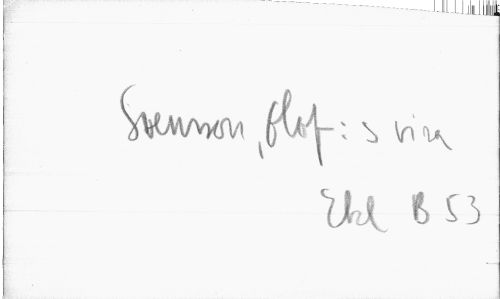 Svensson, Olof: s visa
Ekl B 53